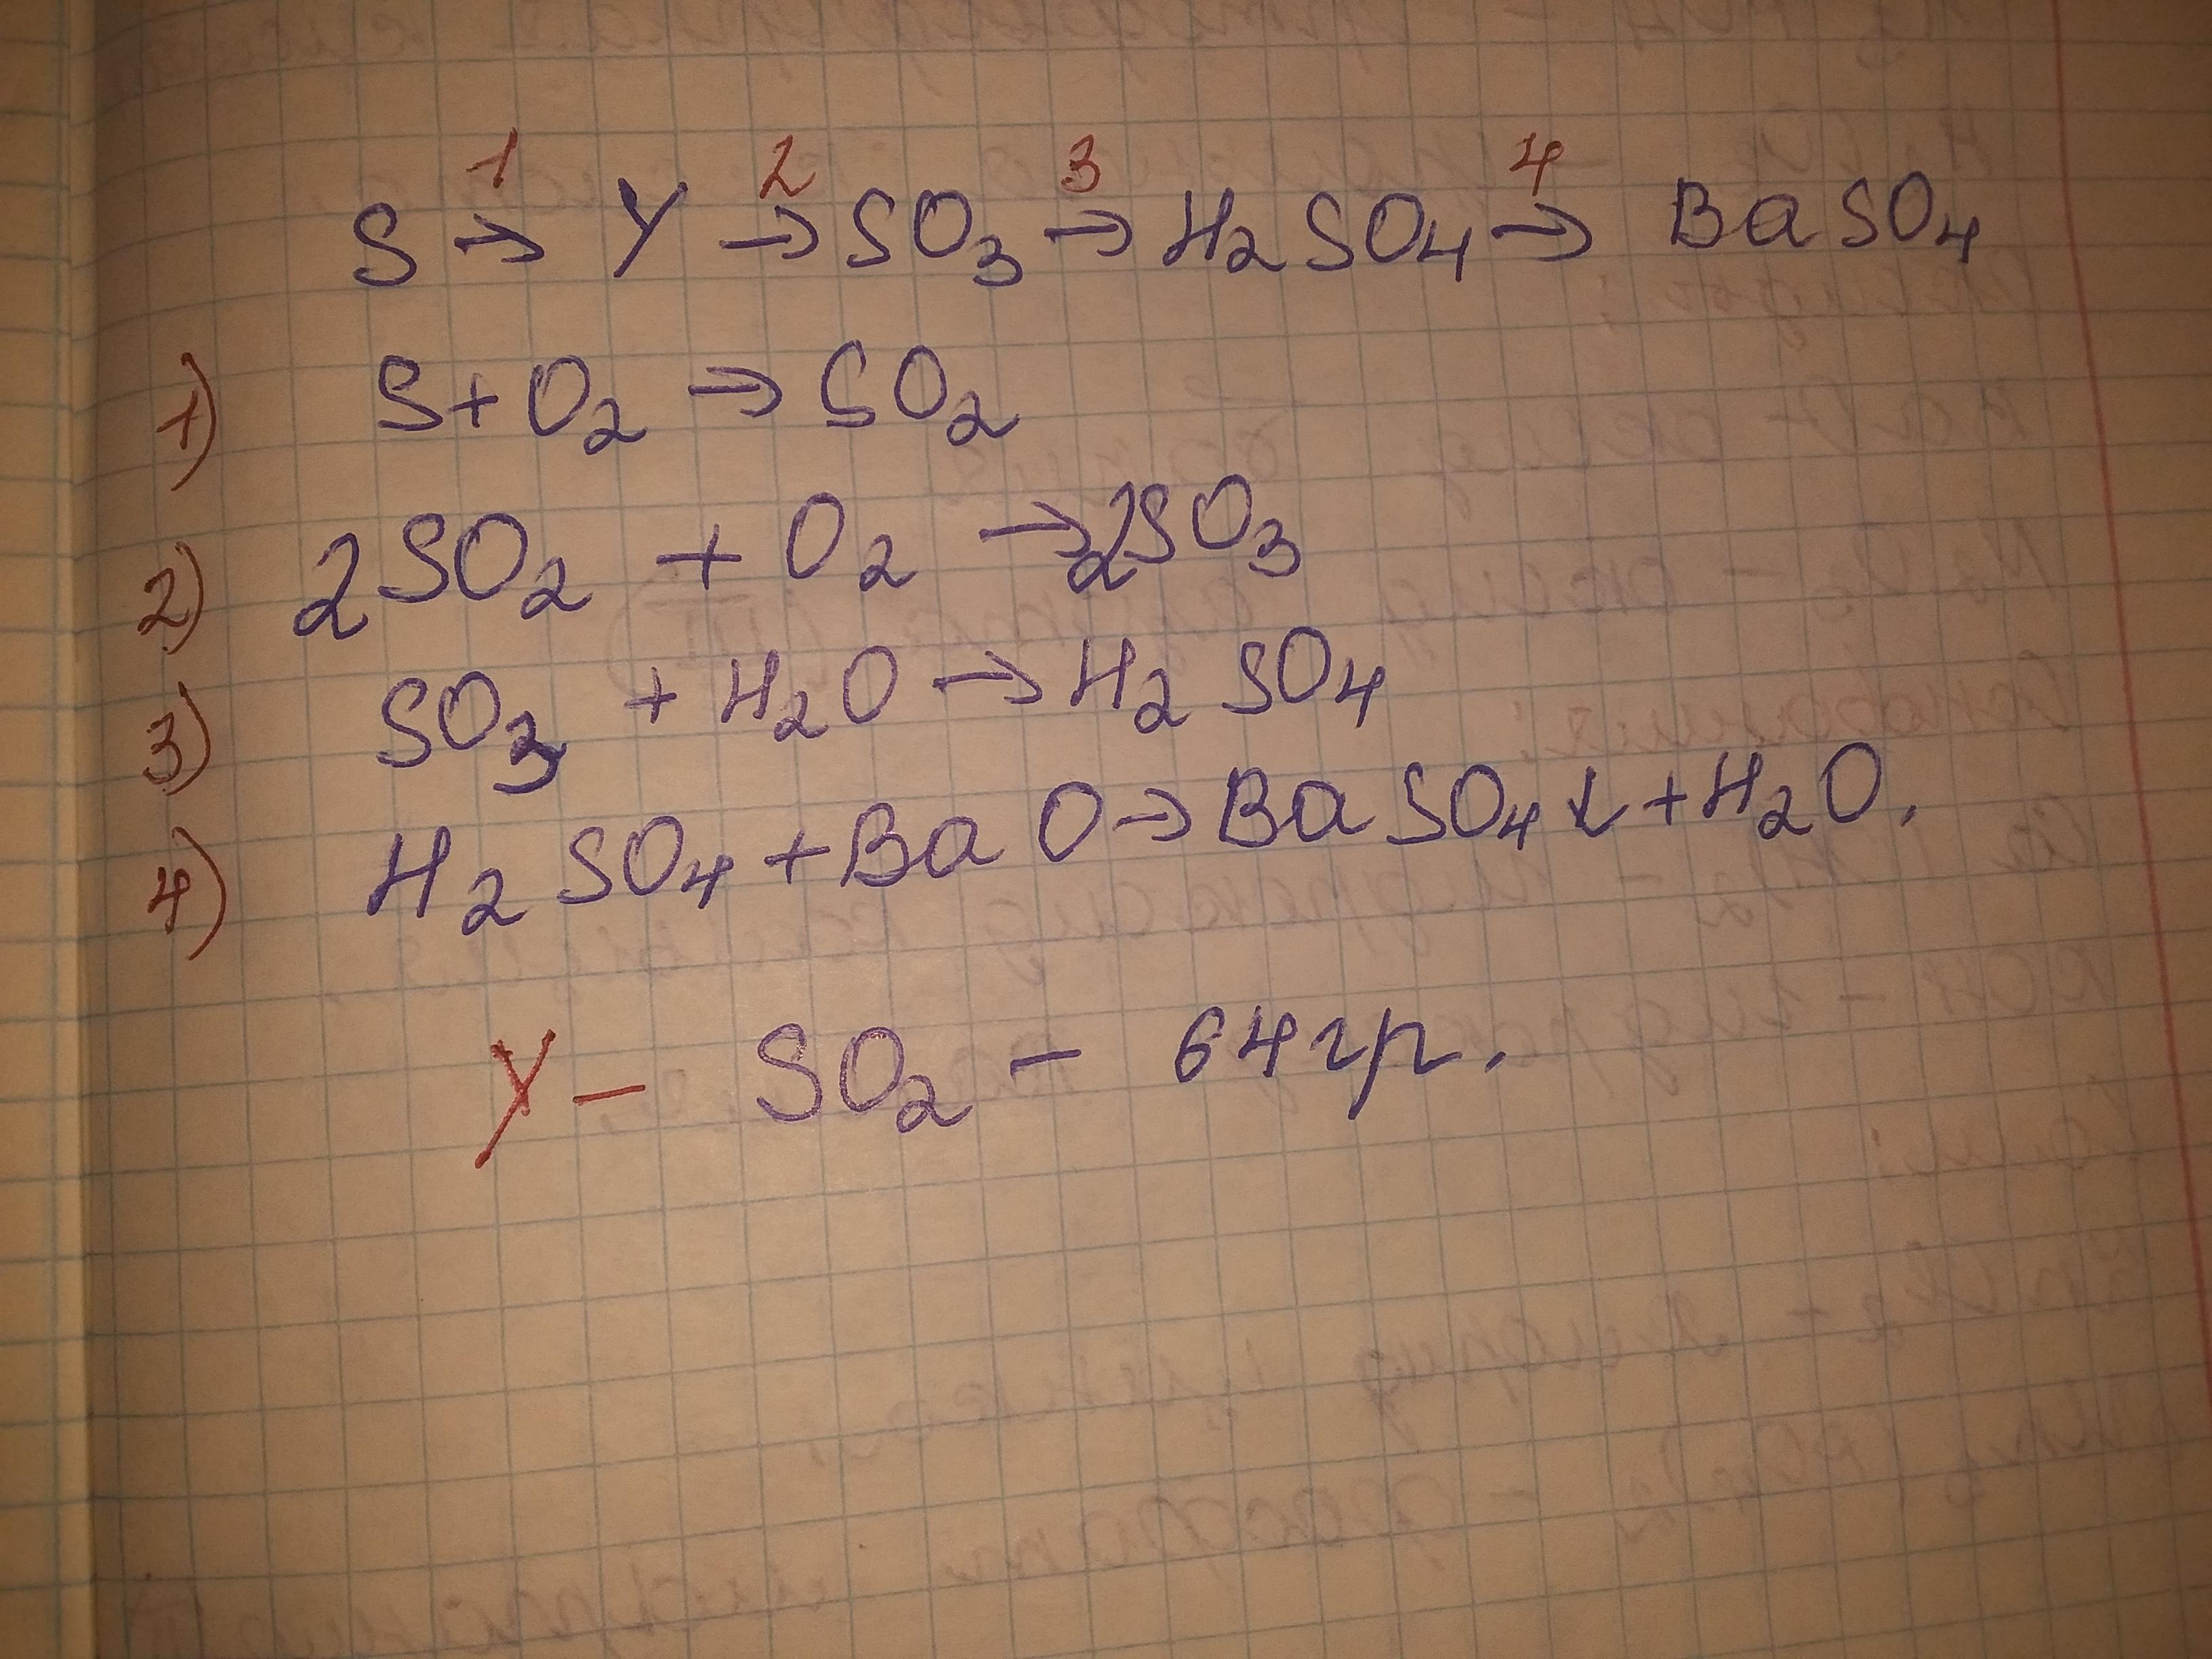 1 2 3 4
S → Y → SO₃ → H₂SO₄ → BaSO₄
1) S + O₂ → SO₂
2) 2SO₂ + O₂ → 2SO₃
3) SO₃ + H₂O → H₂SO₄
4) H₂SO₄ + BaO → BaSO₄↓ + H₂O.
Y – SO₂ – 64гр.